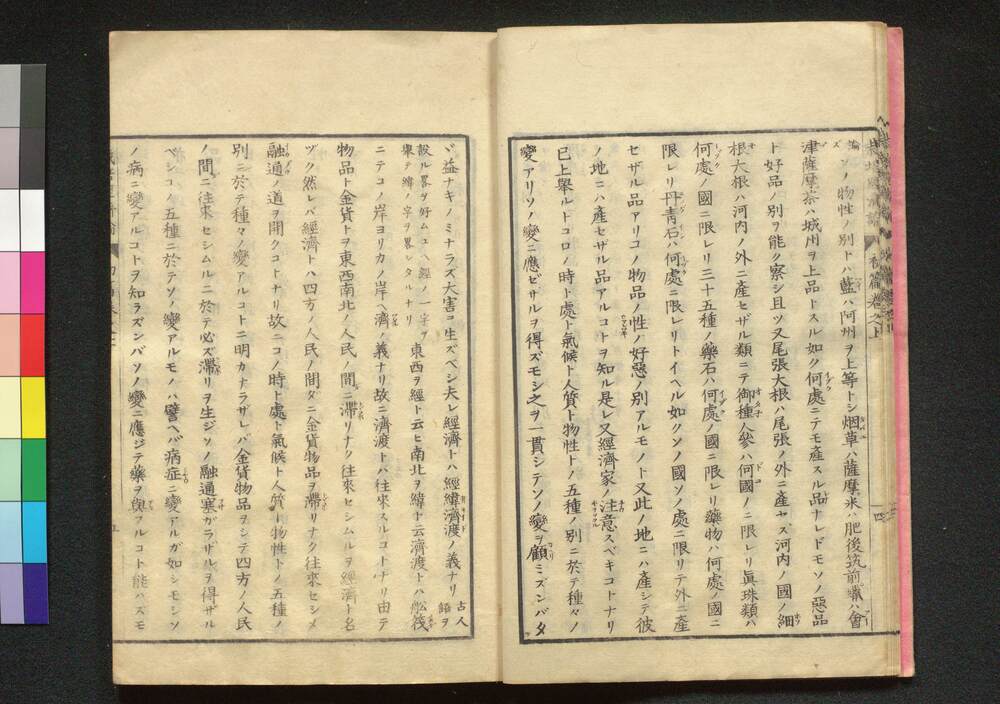 ソノ物性ノ別トハ藍ハ阿州ヲ上等トシ烟草ハ薩摩米ハ肥後筑前蠟ハ會
津薩摩茶ハ城州ヲ上品トスル如ク何處ニテモ產スル品ナレドモソノ惡品
ト好品ノ別ヲ能ク察シ且ツ又尾張大根ハ尾張ノ外ニ產セズ河内ノ國ノ細
根大根ハ河内ノ外ニ產セザル類ニテ御種人參ハ何國ノニ限レリ眞珠類ハ
何處ノ國ニ限レリ三十五種ノ藥石ハ何處ノ國ニ限レリ藥物ハ何處ノ國ニ
限レリ丹青石ハ何處ニ限レリトイヘル如クソノ國ソノ處ニ限リテ外ニ產
セザル品アリコノ物品ノ性ノ好惡ノ別アルモノト又此ノ地ニハ產シテ彼
ノ地ニハ產セザル品アルコトヲ知ル是レ又經濟家ノ注意スベキコトナリ
已上舉ルトコロノ時ト處ト氣候ト人質ト物性トノ五種ノ別ニ於テ種々ノ
變アリソノ變ニ應ゼザルヲ得ズモシ之ヲ一貫シテソノ變ヲ顧ミズンバタ
ヾ益ナキノミナラズ大害ヲ生ズベシ夫レ經濟トハ經緯濟渡ノ義ナリ古人語ヲ
設ル畧ヲ好ムユヘ經ノ一字ヲ舉テ緯ノ字ヲ畧シタルナリ東西ヲ經ト云ヒ南北ヲ緯ト云濟渡トハ舩筏
ニテコノ岸ヨリカノ岸ヘ濟ス義ナリ故ニ濟渡トハ往來スルコトナリ由テ
物品ト金貨トヲ東西南北ノ人民ノ間ニ滯リナク往來セシムルヲ經濟ト名
ヅク然レバ經濟トハ四方ノ人民ノ間ダニ金貨物品ヲ滯リナク往來セシメ
融通ノ道ヲ開クコトナリ故ニコノ時ト處ト氣候ト人質ト物性トノ五種ノ
別ニ於テ種々ノ變アルコトニ明カナラザレバ金貨物品ヲシテ四方ノ人民
ノ間ニ往來セシムルニ於テ必ズ滯リヲ生ジソノ融通塞ガラザルヲ得ザル
ベシコノ五種ニ於テソノ變アルモノハ譬ヘバ病症ニ變アルガ如シモシソ
ノ病ニ變アルコトヲ知ラズンバソノ變ニ應ジテ藥ヲ與フルコト能ハズモ